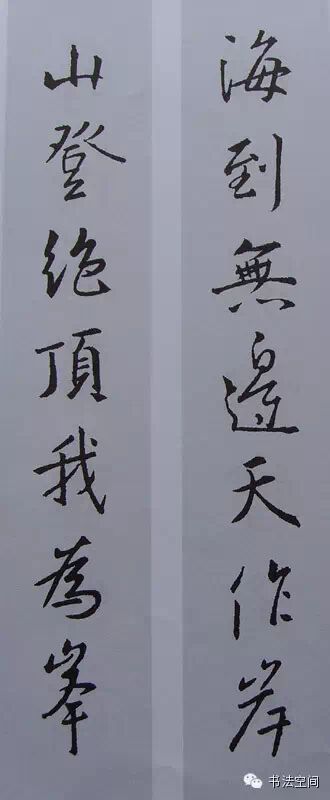 海到無邊天作岸
山登絶頂我為峯
书法空间